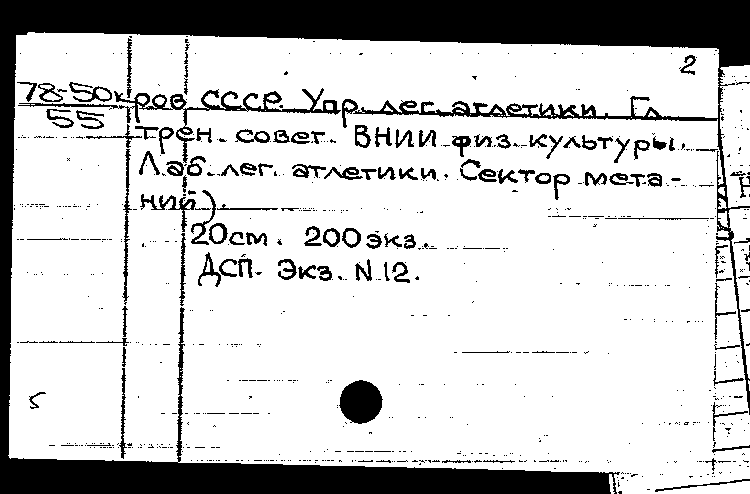 2
78-50к ров СССР. Упр. лег. атлетики. Гл.
55 трен. совет. ВНИИ физ. культуры.
Лаб. лег. атлетики. Сектор мета-
ний).
20см. 200 экз.
ДСП. Экз. N 12.
5